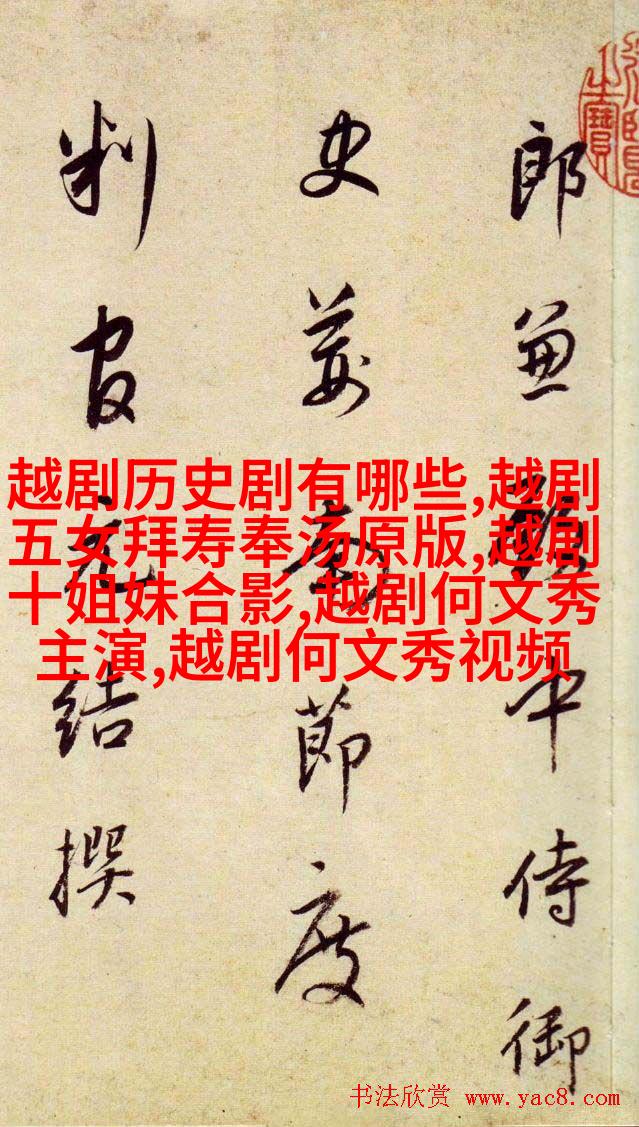 郎兼殿中侍御
史荊南節度
判官元結撰
越剧历史剧有哪些,越剧
五女拜寿奉汤原版,越剧
十姐妹合影,越剧何文秀
主演,越剧何文秀视频
书法欣赏 www.yac8.com